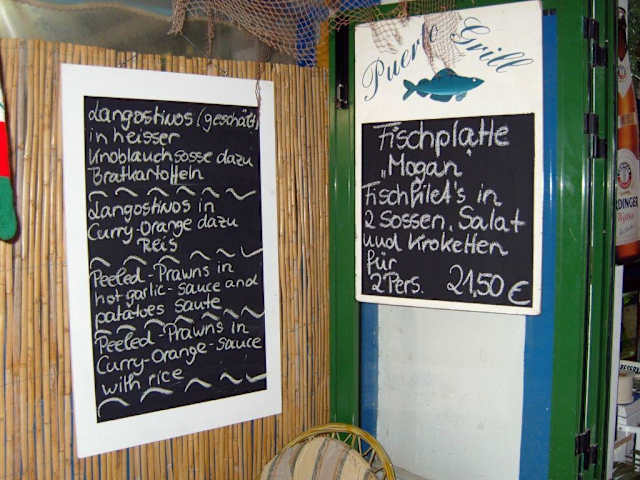 Langostinos (geschält)
in heisser
Knoblauchsosse dazu
Bratkartoffeln
Langostinos in
Curry-Orange dazu
Reis
Peeled-Prawns in
hot garlic-sauce and
patatoes saute
Peeled-Prawns in
Curry-Orange-sauce
with rice
Puerto Grill
Fischplatte
„Mogan"
Fischfilet's in
2 Sossen, Salat
und Kroketten
für
2 Pers. 21,50 €
RDINGER